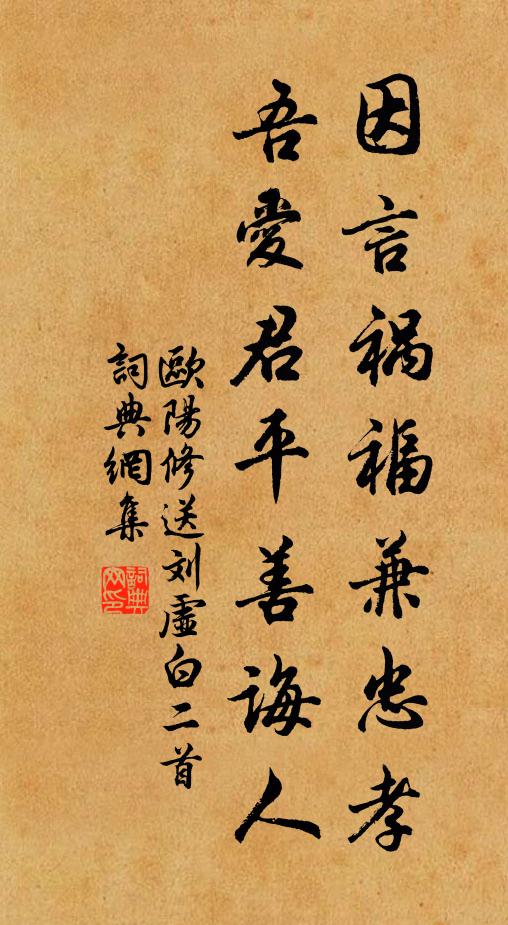 因言祸福兼忠孝
吾愛君平善誨人
歐陽修送刘虛白二首
詞典網集
詞典网印